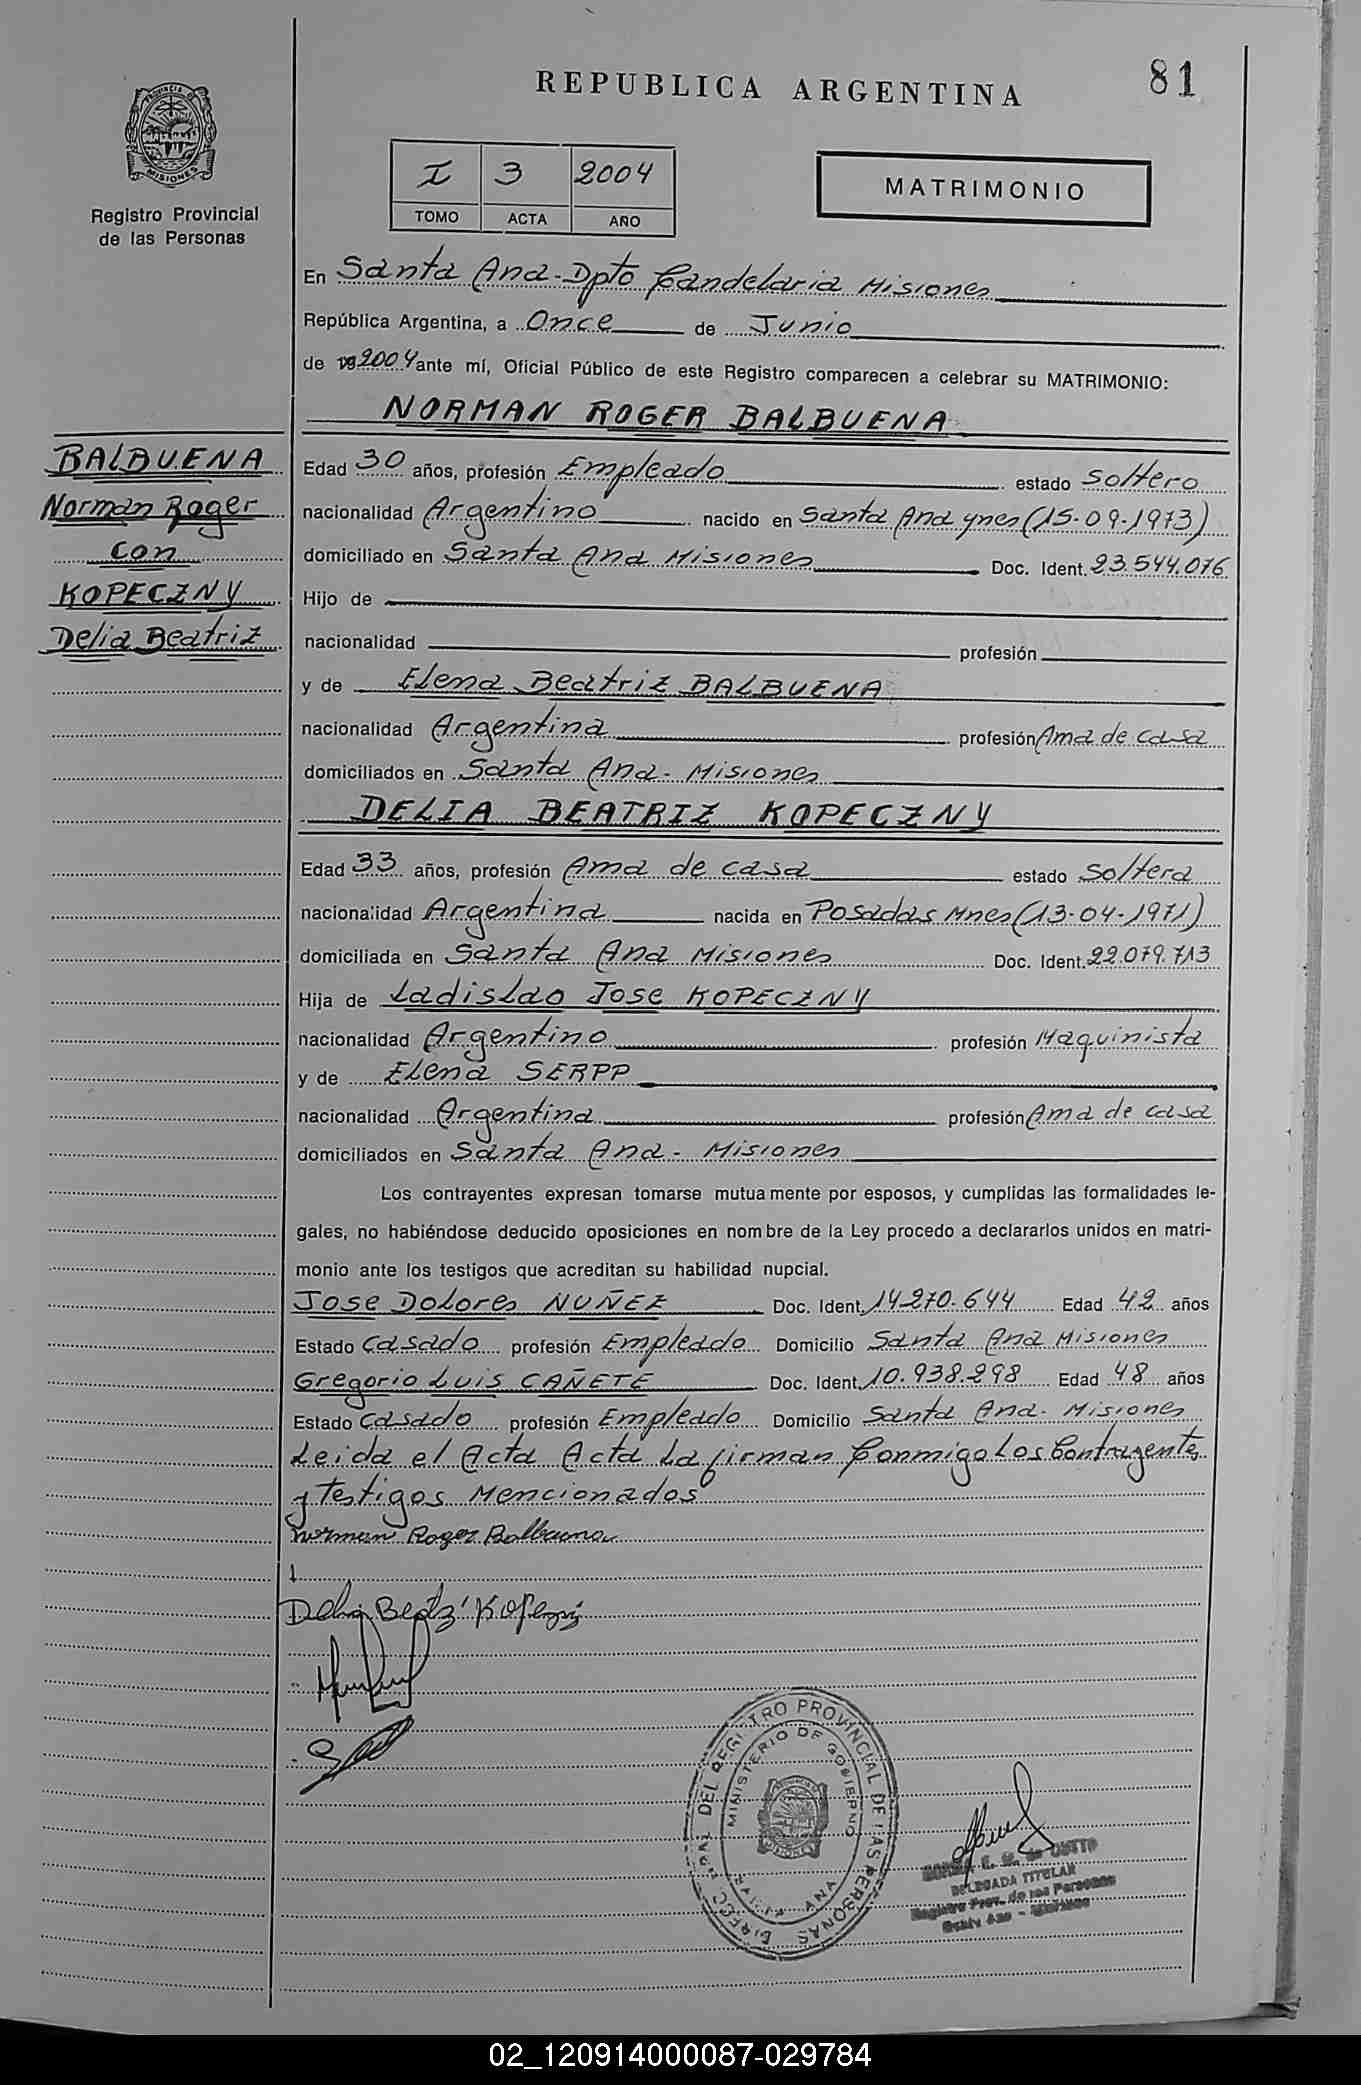 REPUBLICA ARGENTINA
81
PROVINCIA DE
MISIONES
Registro Provincial
de las Personas
I 3 2004
TOMO ACTA AÑO
MATRIMONIO
En Santa Ana - Dpto Candelaria Misiones
República Argentina, a Once de Junio
de 2004 ante mí, Oficial Público de este Registro comparecen a celebrar su MATRIMONIO:
NORMAN ROGER BALBUENA
BALBUENA
Norman Roger
con
KOPECZNY
Delia Beatriz
Edad 30 años, profesión Empleado estado Soltero
nacionalidad Argentino nacido en Santa Ana Mnes (15-09-1973)
domiciliado en Santa Ana Misiones Doc. Ident. 23.544.076
Hijo de
nacionalidad profesión
y de Elena Beatriz BALBUENA
nacionalidad Argentina profesión Ama de casa
domiciliados en Santa Ana - Misiones
DELIA BEATRIZ KOPECZNY
Edad 33 años, profesión Ama de casa estado Soltera
nacionalidad Argentina nacida en Posadas Mnes (13-04-1971)
domiciliada en Santa Ana Misiones Doc. Ident. 22.079.713
Hija de Ladislao Jose KOPECZNY
nacionalidad Argentino profesión Maquinista
y de Elena SERPP
nacionalidad Argentina profesión Ama de casa
domiciliados en Santa Ana - Misiones
Los contrayentes expresan tomarse mutuamente por esposos, y cumplidas las formalidades le-
gales, no habiéndose deducido oposiciones en nombre de la Ley procedo a declararlos unidos en matri-
monio ante los testigos que acreditan su habilidad nupcial.
Jose Dolores NUÑEZ Doc. Ident. 14270.644 Edad 42 años
Estado Casado profesión Empleado Domicilio Santa Ana Misiones
Gregorio Luis CAÑETE Doc. Ident. 10.938.298 Edad 48 años
Estado Casado profesión Empleado Domicilio Santa Ana - Misiones
Leida el Acta Acta La firman Conmigo Los Contrayentes
y Testigos Mencionados
Norman Roger Balbuena
Delia Beatz Kopeczny
DIREC. GRAL DEL REGISTRO PROVINCIAL DE LAS PERSONAS
MINISTERIO DE GOBIERNO
ANA
DELEGADA TITULAR
Registro Prov. de las Personas
Santa Ana - Misiones
02_120914000087-029784